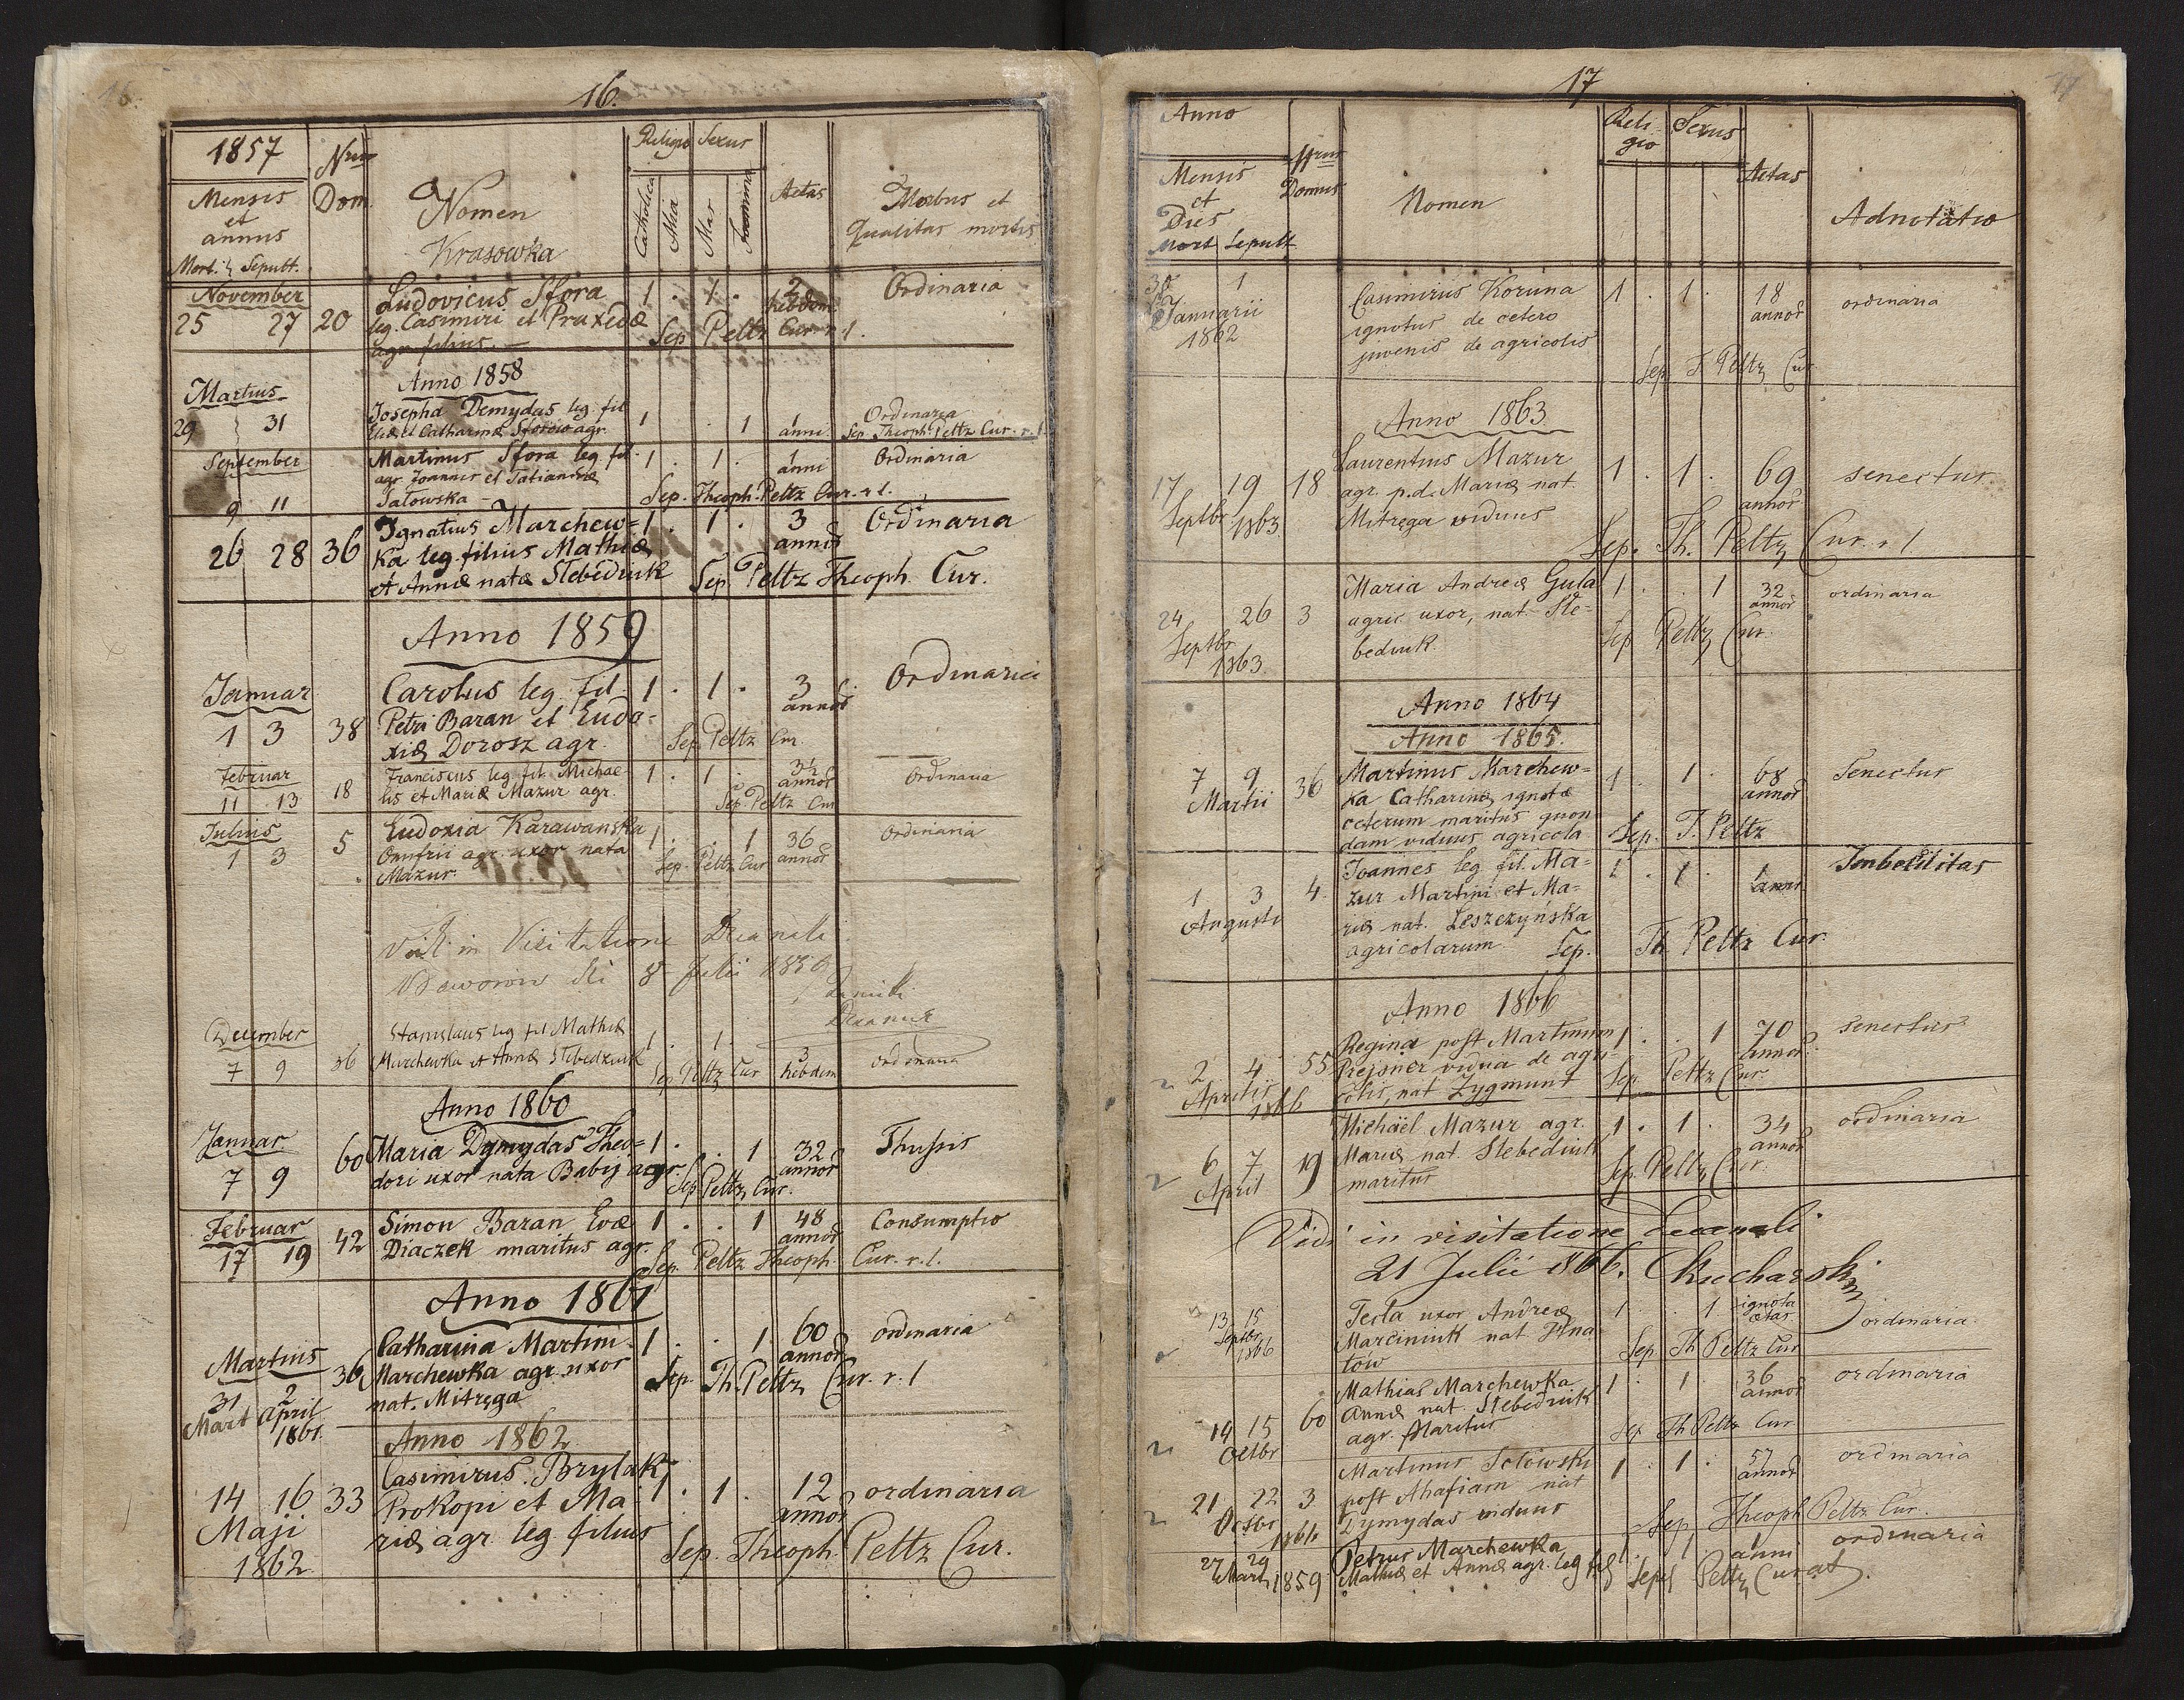 16.
1857
Nrus
Dom.
Mensis
et
annus
Mort. Sepult.
Nomen
Krasowka
Religio Sexus
Catholica
Alia
Mas
Foemina
Aetas
Morbus et
Qualitas mortis
November
25 27 20 Ludovicus Sfora 1 . 1 . 2 Ordinaria
leg. Casimiri et Praxedæ hebdom
agr. filius Sep Peltz Cur. r. l.
Anno 1858
Martius
29 31 Josepha Demydas leg. fil. 1 . . 1 1 anni Ordinaria
Eliæ et Catharinæ agr. Sep. Theoph. Peltz Cur. r. l.
September
9 11 Martinus Sfora leg. fil. 1 . 1 . 1 anni Ordinaria
agr. Joannis et Tatiannæ
Satowska Sep. Theoph. Peltz Cur. r. l.
26 28 36 Ignatius Marchew= 1 . 1 . 3 Ordinaria
ka leg. filius Mathiæ annor
et Annæ natæ Stebediuk Sep. Peltz Theoph. Cur.
Anno 1859
Januar
1 3 38 Carolus leg. fil. 1 . 1 . 3 annor Ordinaria
Petri Baran et Eudo=
xiæ Dorosz agr. Sep. Peltz Cur.
Februar
11 13 18 Franciscus leg. fil. Michae 1 . 1 . annor Ordinaria
lis et Mariæ Mazur agr. Sep. Peltz Cur
Julius
1 3 5 Eudoxia Karawanska 1 . . 1 36 Ordinaria
Onufrii agr. uxor nata annor
Mazur. Sep. Peltz Cur
in Visitatione Decanali
8 Julii
Decanus
December
7 9 36 Stanislaus leg fil Mathiæ 1 . 1 . 3
Marchewka et Annæ Stebedziuk hebdom ordinaria
Sep Peltz Cur
Anno 1860
Januar
7 9 60 Maria Dymydas Theo= 1 . . 1 32 Thussis
dori uxor nata Babij agr annor
Sep Peltz Cur.
Februar
17 19 42 Simon Baran Evæ 1 . . 1 48 Consumptio
Diaczek maritus agr. annor
Sep. Peltz Theoph. Cur. r. l.
Anno 1861
Martius
31 2 36 Catharina Martini 1 . . 1 60 ordinaria
Mart April Marchewka agr. uxor annor
1861. nat. Mitręga Sep. Th. Peltz Cur. r. l
Anno 1862
14 16 33 Casimirus Brylak
Maji Prokopi et Ma 1 . 1 . 12 ordinaria
1862 riæ agr. leg filius annor
Sep. Theoph. Peltz Cur.
17
Anno
Mensis
et
Dies
Mort Sepult
Nrus
Domus
Nomen
Reli-
gio
Sexus
Aetas
Adnotatio
30 1
Januarii
1862
Casimirus Koruna 1 . 1 . 18 ordinaria
ignotus de cetero annor
juvenis de agricolis
Sep T. Peltz Cur
Anno 1863
17 19 18 Laurentius Mazur 1 . 1 . 69 senectus
Septbr 1863 agr. p. d. Mariæ nat. annor
Mitręga viduus
Sep. Th. Peltz Cur. r. l
24 26 3 Maria Andreæ Gula 1 . . 1 32 ordinaria
Septbr agric uxor, nat. Ste= annor
1863 bediuk. Sep Peltz Cur.
Anno 1864
Anno 1865.
7 9 36 Martinus Marchew= 1 . 1 . 68 Senectus
Martii ka Catharinæ ignotæ annor
ceterum maritus quon
dam viduus agricola Sep. T. Peltz
1 3 4 Joannes leg fil. Ma= 1 . 1 . 1 Imbecilitas
Augusti zur Martini et Ma= anni
riæ nat. Leszczyńska
agricolarum Sep. Th. Peltz Cur.
Anno 1866
2 4 55 Regina post Martinum 1 . . 1 70 senectus
Aprilis Prejsner vidua de agri= annor
1866 colis, nat Zygmunt Sep. Peltz Cur.
6 7 19 Michäel Mazur agr. 1 . 1 . 34 ordinaria
April Mariæ nat. Stebediuk annor
maritus Sep. Peltz Cur.
Vidi in visitatione decanali
21 Julii 1866. Kucharski
13 15 Tecla uxor Andreæ 1 . . 1 ignota ordinaria
Septbr Marciniuk nat. Hna ætas
1866 tow Sep Th Peltz Cur
14 15 60 Mathias Marchewka 1 . 1 . 36 ordinaria
Octbr Annæ nat. Stebediuk annor
agr. maritus Sep Th Peltz Cur
21 22 3 Martinus Sołowski 1 . 1 . 57 ordinaria
Octbr post Ahafiam nat annor
1866 Dymydas viduus Sep. Theoph Peltz Cur.
27 29 Petrus Marchewka 1 . 1 . 1 anni ordinaria
Mart 1859 Mathiæ et Annæ agr. leg fil Sep Peltz Curat.